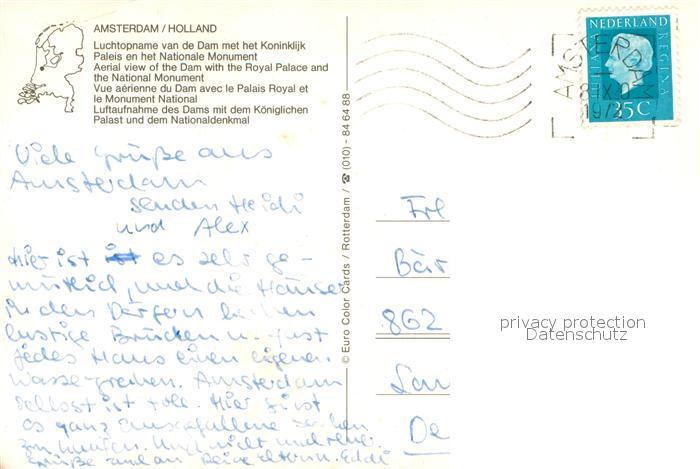 AMSTERDAM / HOLLAND
Luchtopname van de Dam met het Koninklijk
Paleis en het Nationale Monument
Aerial view of the Dam with the Royal Palace and
the National Monument
Vue aérienne du Dam avec le Palais Royal et
le Monument National
Luftaufnahme des Dams mit dem Königlichen
Palast und dem Nationaldenkmal
Viele Grüße aus
Amsterdam
senden Heidi
und Alex
Hier ist es sehr ge-
mütlich, und die Häuser
in den Dörfern haben
lustige Brücken u. fast
jedes Haus einen eigenen
Wassergraben. Amsterdam
selbst ist toll. Hier gibt
es ganz ausgefallene Sachen
zu kaufen. Und nicht
Grüße auch an Deine Eltern u. Eddi
© Euro Color Cards / Rotterdam / ☎ (010) - 84 64 88
NEDERLAND
JULIANA REGINA
35 C
AMSTERDAM
IX
197
Frl
Bär
862
De
privacy protection
Datenschutz